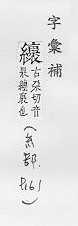 字彙補
纕
古朵切音
果纏裹也
(糸部.
P161)